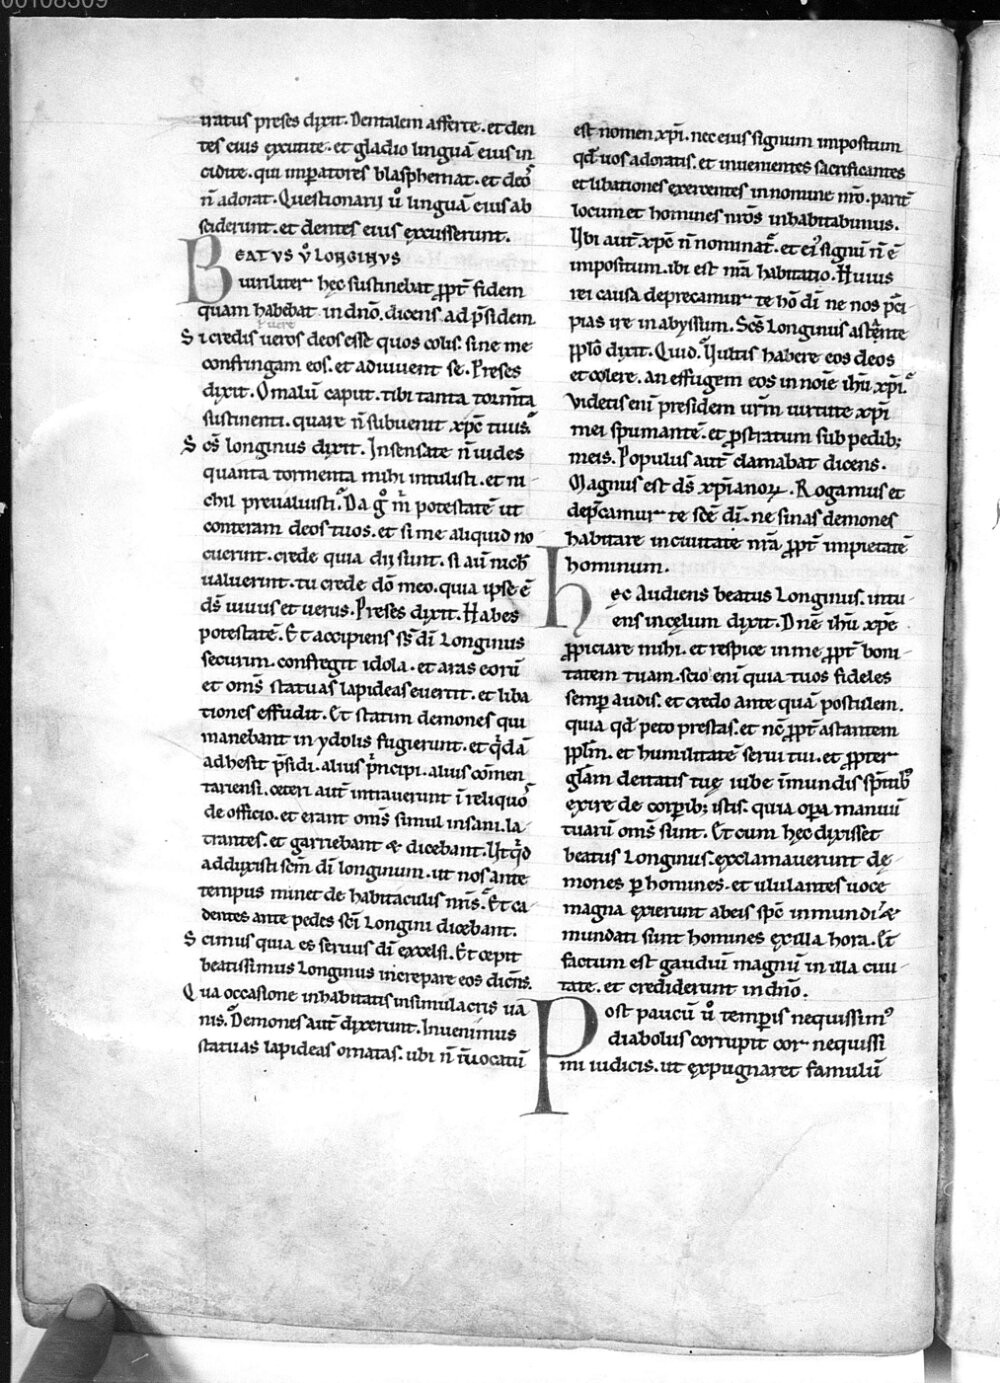 00108309
iratus preses dixit. Dentalem afferte. et den
tes eius excutite. et gladio linguā eius in
cidite. qui imꝑatores blasphemat. et deos
n̄ adorat. Questionarii ů linguā eius ab
sciderunt. et dentes eius excusserunt.
BEATVS ů LONGINVS
uiriliter hęc sustinebat ꝓpt̄ fidem
quam habebat in dn̄o. dicens ad p̄sidem
Si credis ueros deos esse quos colis. sine me
confringam eos. et adiuuent se. Preses
dixit. O malū caput. tibi tanta torm̄ta
sustinenti. quare n̄ subuenit xp̄c tuus?
Scs̄ longinus dixit. Insensate n̄ uides
quanta tormenta mihi intulisti. et ni
chil preualuisti? Da gͦ m̄ potestatē ut
conteram deos tuos. et si me aliquid no
cuerint. crede quia dii sunt. si aut̄ nich̄
ualuerint. tu crede dō meo. quia ipse ē
ds̄ uiuus et uerus. Preses dixit. Habes
potestatē. Et accipiens ss̄ di Longinus
securim. confregit idola. et aras eorū
et oms̄ statuas lapideas euertit. et liba
tiones effudit. Et statim demones qui
manebant in ydolis fugierunt. et q̇dā
adhesit p̄sidi. alius p̄ncipi. alius cōmen
tariensi. ceteri aut̄ intrauerunt ī reliquos
de officio. et erant oms̄ simul insani. la
trantes. et garriebant & dicebant. Utq̇d
adduxisti scm̄ di longinum. ut nos ante
tempus minet de habitaculis nr̄is? Et ca
dentes ante pedes scī Longini dicebant.
Scimus quia es seruus dī excelsi. Et cepit
beatissimus Longinus increpare eos dicn̄s.
Qua occasione inhabitatis in simulacris ua
nis? Demones aut̄ dixerunt. Inuenimus
statuas lapideas ornatas. ubi n̄ īuocatū
est nomen xp̄i. nec eius signum impositum
qd̄ uos adoratis. et inuenientes sacrificantes
et libationes exercentes in nomine nr̄o. parit̄
locum et homines nr̄os inhabitabimus.
Ubi aut̄ xp̄c n̄ nominat᷑. et eiꝰ signū n̄ ē
impositum. ibi est nr̄a habitatio. Huius
rei causa deprecamur te hō di ne nos p̄ci
pias ire in abyssum. Scs̄ Longinus astante
ꝓplō dixit. Quid? Vultis habere eos deos
et colere. an effugem eos in noīe ihū xp̄i?
Videtis eni presidem urm̄ uirtute xp̄i
mei spumantē. et ꝓstratum sub pedib;
meis. Populus aut̄ clamabat dicens.
Magnus est ds̄ xp̄ianoꝝ. Rogamus et
dep̄camur te scē di. ne sinas demones
habitare in ciuitate nr̄a ꝓpt̄ impietatē
hominum.
Hęc Audiens beatus Longinus. intu
ens in celum dixit. Dnē ihū xp̄e
ꝓpiciare mihi. et respice in me ꝓpt̄ boni
tatem tuam. scio eni quia tuos fideles
semꝑ audis. et credo ante quā postulem.
quia qd̄ peto prestas. et nc̄ ꝓpt̄ astantem
ꝓplm̄. et humilitatē serui tui. et ꝓpter
gl̄am deitatis tuę iube īmundis sp̄ritibꝰ
exire de corꝑib; istis. quia oꝑa manuū
tuarū oms̄ sunt. Et cum hęc dixisset
beatus Longinus. exclamauerunt de
mones ꝑ homines. et ululantes uoce
magna exierunt ab eis spc̄ inmundi. &
mundati sunt homines ex illa hora. Et
factum est gaudiū magnū in illa ciui
tate. et crediderunt in dn̄o.
Post paucū ů temꝑis nequissimꝰ
diabolus corrupit cor nequissi
mi iudicis. ut expugnaret famulū